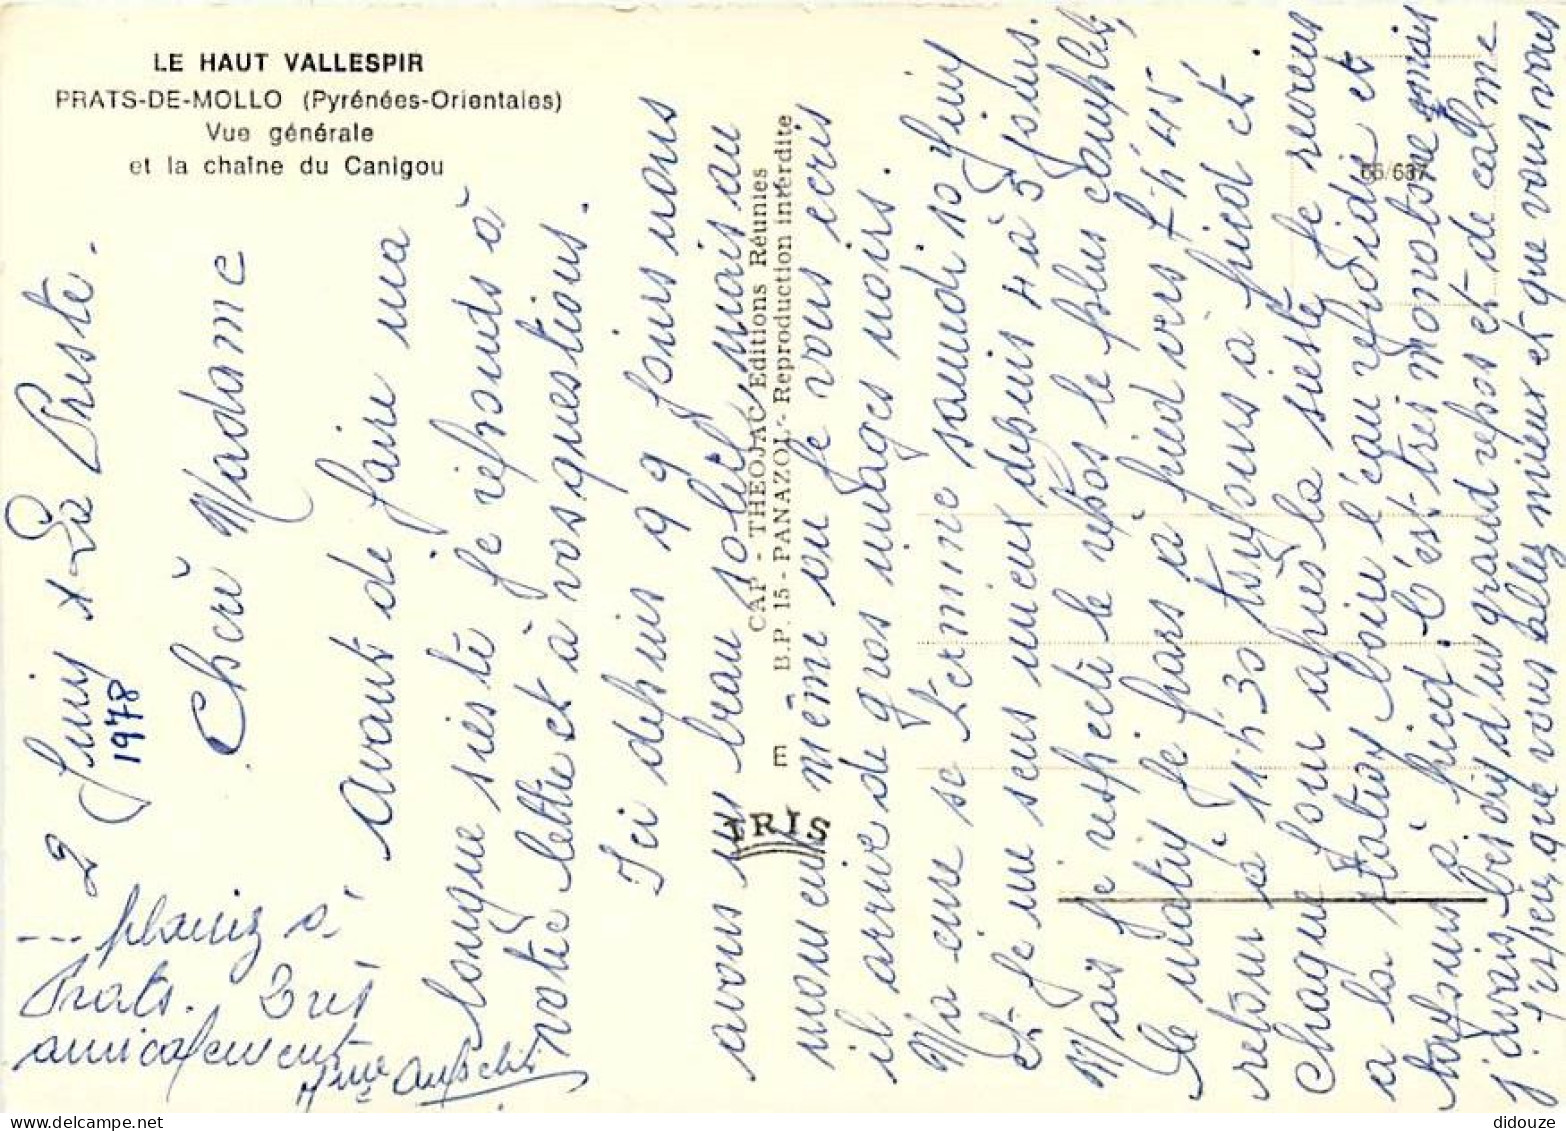 LE HAUT VALLESPIR
PRATS-DE-MOLLO (Pyrénées-Orientales)
Vue générale
et la chaîne du Canigou
66/637
CAP - THEOJAC - Editions Réunies
E B.P. 15 - PANAZOL - Reproduction interdite
IRIS
2 Juin x La Preste.
1978
Cherè Madame
Avant de faire ma
longue siestè je réponds à
votre lettre et à vos questions.
Ici depuis 9 jours nous
avons eu beau soleil mais au
moment même ou je vous ecris
il arrive de gros nuages noirs.
Ma cure se termine samedi 10 Juin
et je me sens mieux depuis 4 à 5 jours.
Mais je respecte le repos le plus complet,
le matin je pars à pied vers 7h45
retour à 11h30 toujours à pied et
chaque jour après la sieste je reviens
a la station boire l'eau refroidie et
toujours à pied. C'est très monotone mais
j'avais besoin d'un grand repos et de calme
J'espère que vous allez mieux et que vous vous
... plaisez à
Prats. Très
amicalement
Mme
didouze